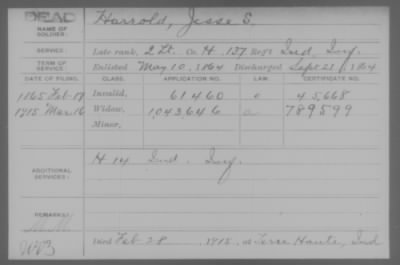 DEAD
NAME OF SOLDIER: Harrold, Jesse S.
SERVICE: Late rank, 2 Lt. Co. H. 137 Reg't Ind. Inf.
TERM OF SERVICE: Enlisted May 10, 1864 Discharged Sept 21, 1864
DATE OF FILING. CLASS. APPLICATION NO. LAW. CERTIFICATE NO.
1865 Feb 17 Invalid, 61460 45,668
1915 Mar 16 Widow, 1,043,646 789599
Minor,
ADDITIONAL SERVICES: H 14 Ind. Inf.
REMARKS:
Died Feb 28, 1915, at Terre Haute, Ind